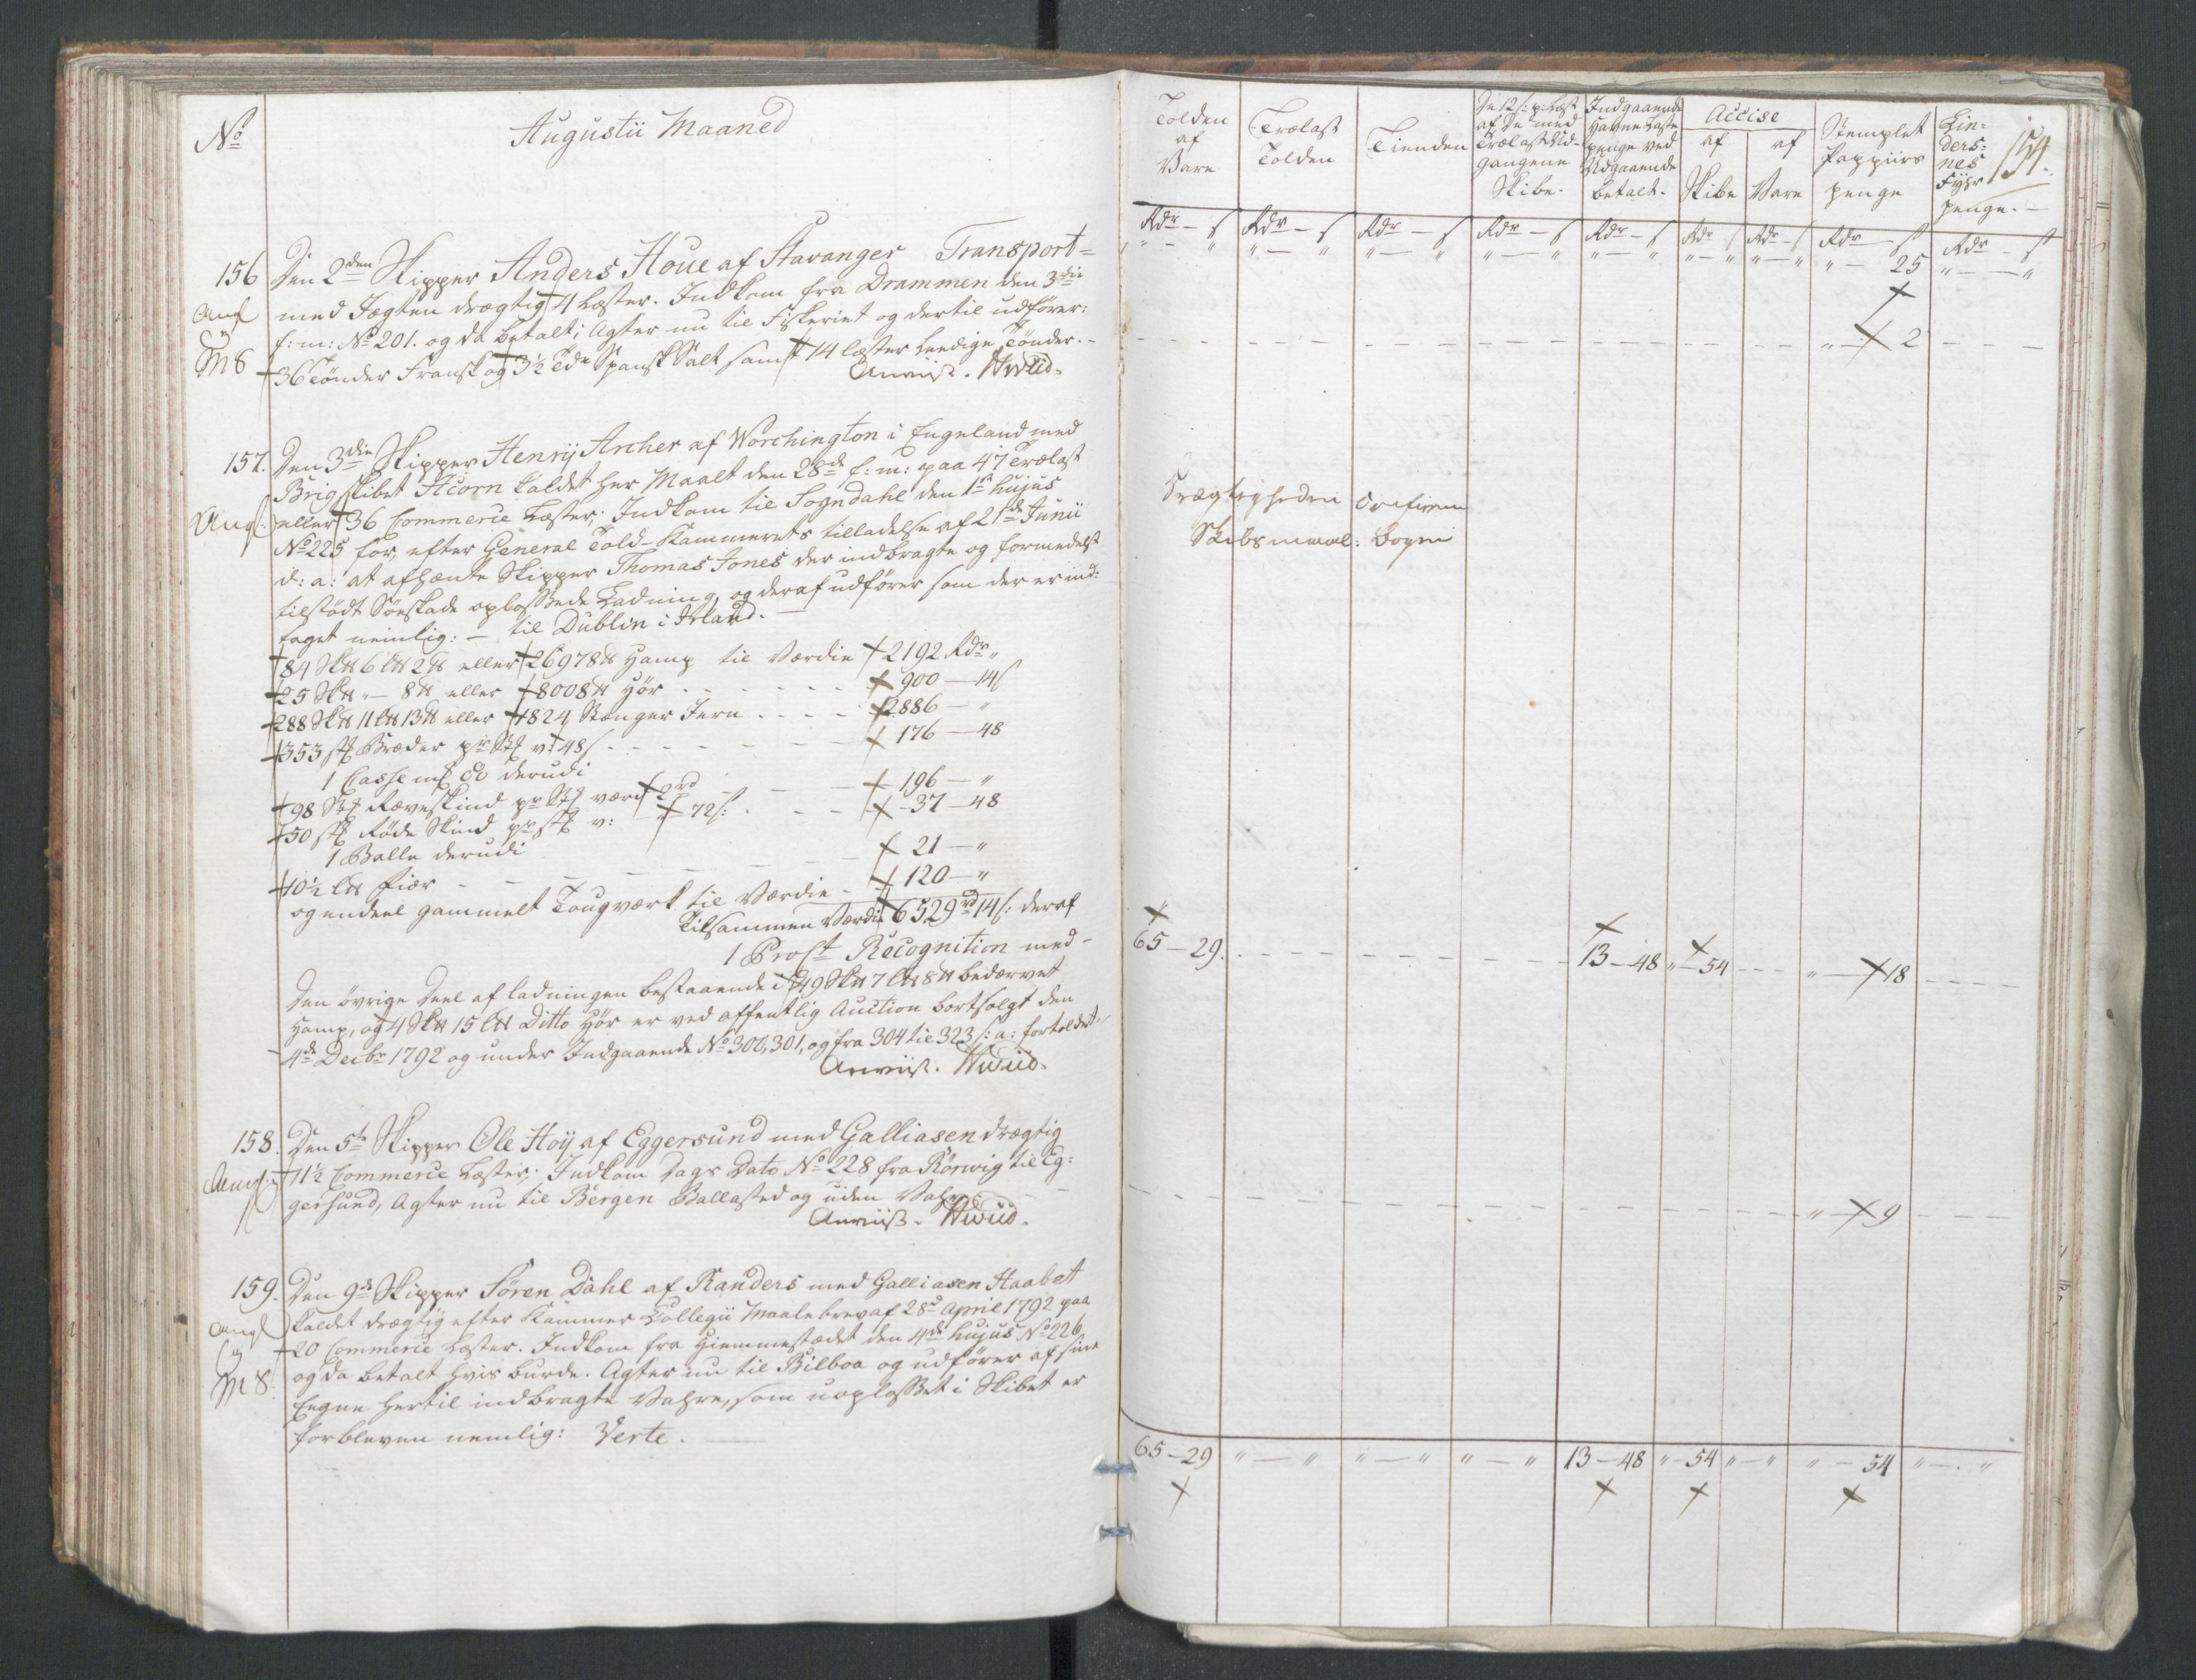 No
Augustii Maaned
156 Den 2den Skipper Anders Houe af Stavanger Transport=
Ang med Jægten drægtig 4 Læster. Indkom fra Drammen den 3die
f: m: No 201. og da betalt; Agter nu til Fiskeriet og dertil udfører:
M8 36 Tönder Fransk og 3½ Tdr Spansk Salt samt 14 læster Leedige Tönder.-
Anviist. Hwiid.
157. Den 3die Skipper Henrÿ Archer af Worchington i Engeland med
Brigskibet Acorn kaldet her Maalt den 28de f: m: paa 47 Trælast
Ang. eller 36 Commerce Læster; Indkom til Sogndahl den 1te hujus
No 225 for efter General Told-Kammerets tilladelse af 21de Junii
d: a: at afhænte Skipper Thomas Jones der indbragte og formedelst
tilstödt Söeskade oplossede Ladning, og deraf udfører som der er ind:
taget nemlig: - til Dublin i Irland. -
84 Sk℔ 6 L℔ 2℔ eller 26978℔ Hamp til Værdie 2192 Rdr „
25 Sk℔ „- 8℔ eller 8008℔ Hör . . . . . 900 - 14 s
288 Sk℔ 11 L℔ 13℔ eller 1824 Stænger Jern . . . . 2886 - „
353 stk Bræder pr Stk v: 48 s - - - - - 176 - 48
1 Casse m/ Co derudi
98 Stk Ræveskind pr Stk værd 2rd - - - 196 - „
50 stk Röde Skind pr stk v: 72 s: . - - 37 - 48
1 Balle derudi
10½ L℔ Fiær - - - - - - 21 - „
og endeel gammelt Tougværk til Værdie - 120 - „
Tilsammen Værdie 6529rd 14 s: deraf
1 Proct Recognition med-
Den övrige Deel af ladningen bestaaende i 49 Sk℔ 7 L℔ 8℔ bedærvet
Hamp, og 4 Sk℔ 15 L℔ Ditto Hör er ved offentlig Auction bortsolgt den
4de Decbr 1792 og under Indgaaende No 300, 301, og fra 304 til 323 s: a: fortoldet.
Anviist. Hwiid.
158. Den 5te Skipper Ole Höÿ af Eggersund med Galliasen drægtig
Ang. 11½ Commerce Læster; Indkom Dags Dato No 228 fra Rörwig til Eg:
gersund, Agter nu til Bergen Ballasted og uden Vahre - -
Anviist. Hwiid.
159. Den 9de Skipper Sören Dahl af Randers med Galliasen Haabet
Ang kaldet drægtig efter Kammer Collegii Maalebrev af 28de April 1792 paa
og 20 Commerce Læster. Indkom fra Hiemmestædet den 4de hujus No 226
M8. og da betalt hvis burde. Agter nu til Bilboa og udfører af sine
Eegne hertil indbragte Vahre, som uoplosset i Skibet er
forbleven nemlig: Verte.
Tolden af Vare
Trælast Tolden
Tienden
De 12 s: pr Læst af De med Trælast Udgangene Skibe.
Indgaaende Havne Laste penge ved Udgaaende betalt.
Accise
af Skibe
af Vare
Stemplet Pappiirs penge
Lin= ders= nes Fyhr penge. -
154.
Rdr - s Rdr - s Rdr - s Rdr - s Rdr - s Rdr s Rdr - s Rdr - s Rdr - s
„ - „ „ - „ „ - „ „ - „ „ - „ „ - „ „ - „ „ - 25 „ - „
„ - 2
Drægtigheden Confirm
Skibsmaal: Bogen
65 - 29. 13 - 48 „ - 54 „ - 18
„ - 9
65 - 29 „ - „ „ - „ „ - „ 13 - 48 „ - 54 „ - „ „ - 54 „ - „